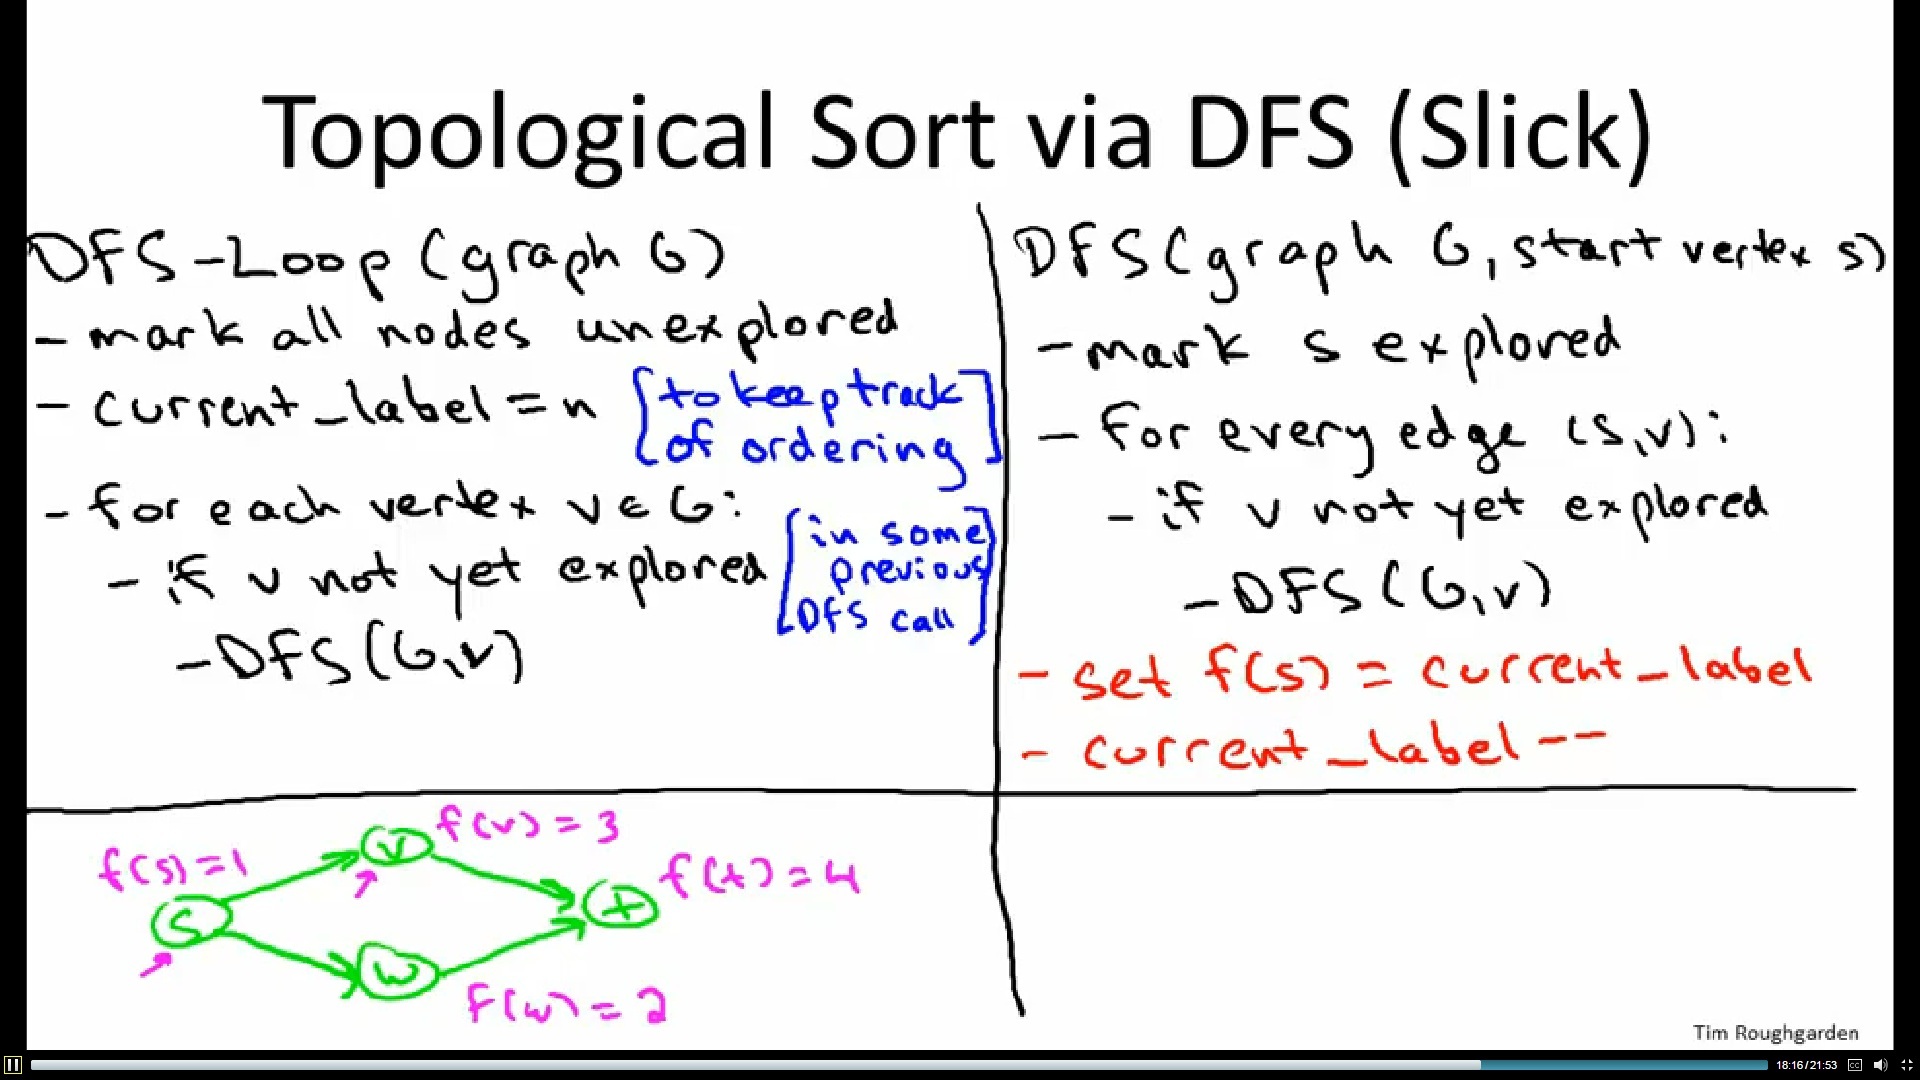 Topological Sort via DFS (Slick)
DFS-Loop (graph G)
- mark all nodes unexplored
- current_label = n [to keep track
of ordering]
- for each vertex v ∈ G:
- if v not yet explored [in some
previous
DFS call]
- DFS(G,v)
DFS(graph G, start vertex s)
- mark s explored
- for every edge (s,v):
- if v not yet explored
- DFS(G,v)
- set f(s) = current_label
- current_label --
f(s)=1
f(v) = 3
f(t) = 4
f(w) = 2
s
v
w
t
Tim Roughgarden
18:16/21:53
CC